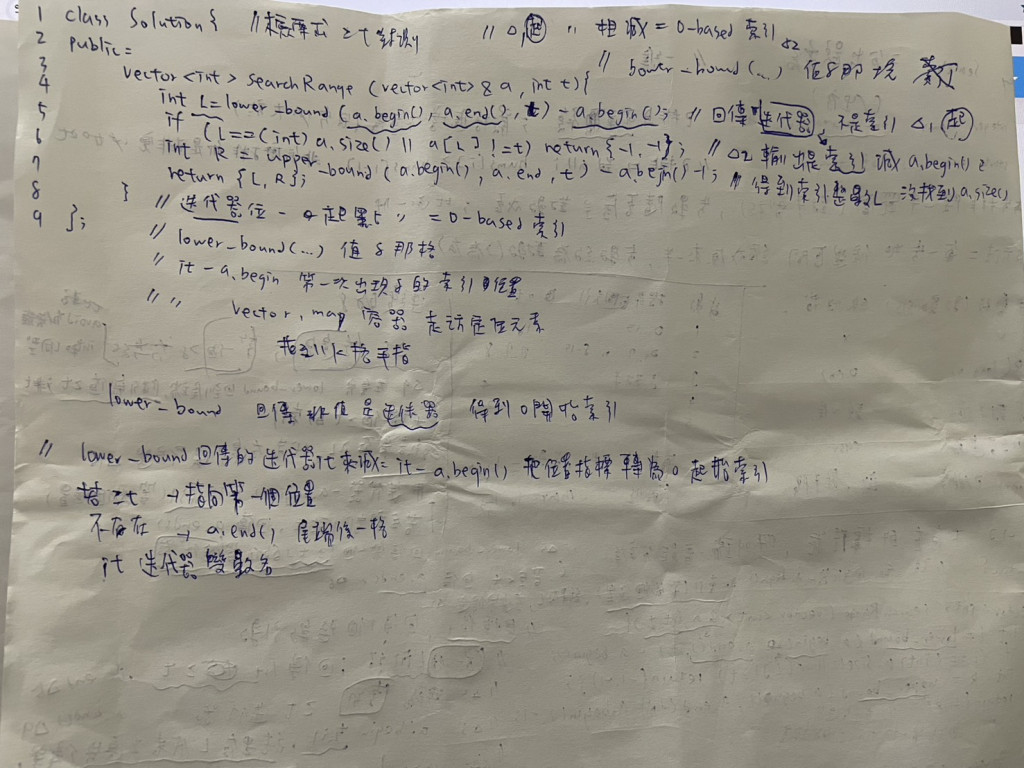 1 class Solution { // ≥ t // 相減 = 0-based 索引
2 public: // lower_bound(...) 值 8 那
3 vector<int> searchRange (vector<int> & a, int t) {
4 int L = lower_bound (a.begin(), a.end(), t) - a.begin(); // 回傳 迭代器 不是索引 △1 起
5 if (L == (int) a.size() || a[L] != t) return {-1, -1}; // △2 輸出是索引 減 a.begin()
6 int R = upper_bound (a.begin(), a.end, t) - a.begin() - 1; // 得到索引整數 L 沒找到 a.size()
7 return {L, R};
8 } // 迭代器位 = 0-based 索引
9 }; // lower_bound(...) 值 8 那格
// it - a.begin 第一次出現 8 的索引位置
// " vector, map 容器 走訪 元素
lower_bound 回傳 非值是迭代器 得到 0 開始索引
// lower_bound 回傳的迭代器 it 來減 = it - a.begin() 把位置指標轉為 0 起始索引
若 ≥ t → 指向第一個位置
不存在 → a.end() 尾端後一格
it 迭代器變數名